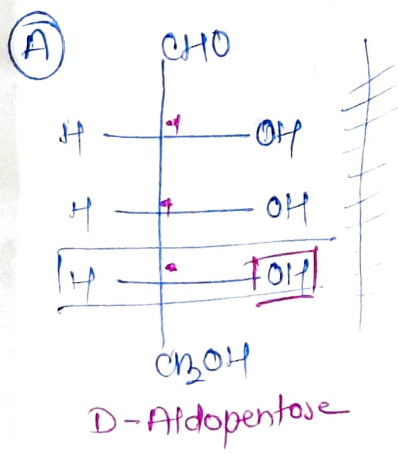 A
CHO
H OH
H OH
H OH
CH2OH
D-Aldopentose